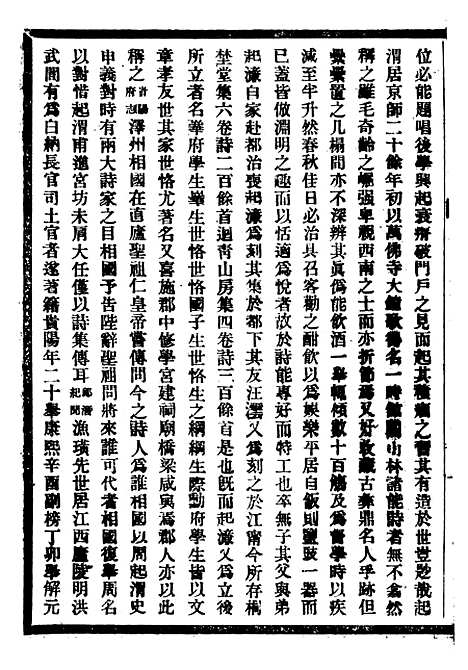 位必能題唱後學興起衰痹破門戶之見而起其積痼之習其有造於世豈尠哉起
渭居京師二十餘年初以萬佛寺大鐘歌得名一時館閣山林諸能詩者無不翕然
稱之雖毛奇齡之崛强卑視西南之士而亦折節焉又好收藏古彝鼎名人手跡但
纍纍置之几榻間亦不深辨其眞僞能飮酒一舉輒傾數十百觴及爲督學時以疾
減至半升然春秋佳日必治具召客勸之酣飮以爲娛樂平居自飯則鹽豉一器而
已蓋皆倣淵明之趣而以恬適爲悅者故於詩能專好而特工也卒無子其父與弟
起濂自家赴都治喪起濂爲刻其集於都下其友汪灝又爲刻之於江甯今所存桐
埜堂集六卷詩二百餘首迴靑山房集四卷詩三百餘首是也旣而起濂又爲立後
所立者名華府學生華生世恪世恪國子生世恪之綱綱生際勳府學生皆以文
章孝友世其家世恪尤著名又喜施郡中修學宮建祠廟橋梁咸與焉郡人亦以此
稱之貴陽府志澤州相國在直廬聖祖仁皇帝嘗傳問今之詩人爲誰相國以周起渭史
申義對時有兩大詩家之目相國予告陛辭聖祖問將來誰可代者相國復舉周名
以對惜起渭甫進宮坊未肩大任僅以詩集傳耳郎潛紀聞漁璜先世居江西廬陵明洪
武間有爲白納長官司土官者遂著籍貴陽年二十舉康熙辛酉副榜丁卯舉解元